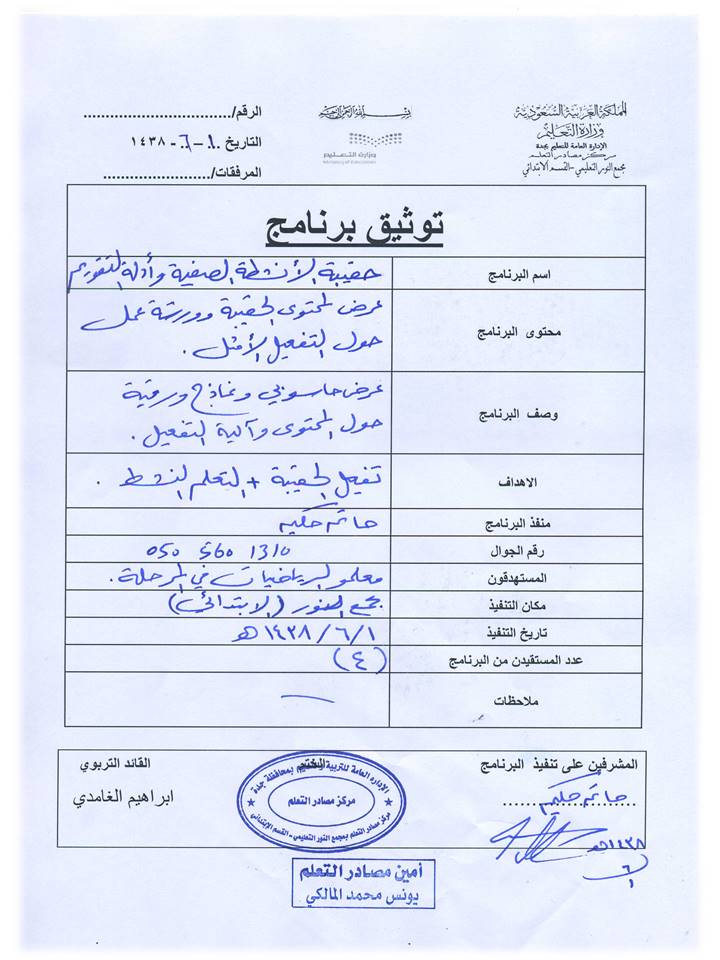 المملكة العربية السعودية
وزارة التعليم
الإدارة العامة للتعليم بجدة
مركز مصادر التعلم
مجمع النور التعليمي - القسم الابتدائي
بسم الله الرحمن الرحيم
وزارة التعليم
Ministry of Education
الرقم/................................
التاريخ ١ - ٦ - ١٤٣٨
المرفقات/........................
توثيق برنامج
اسم البرنامج
حقيبة الأنشطة الصفية وأدلة التقويم
محتوى البرنامج
عرض لمحتوى الحقيبة وورشة عمل
حول التفعيل الأمثل .
وصف البرنامج
عرض حاسوبي ونماذج ورقية
حول المحتوى وآلية التفعيل .
الاهداف
تفعيل الحقيبة + التعلم النشط .
منفذ البرنامج
حاتم حكيم
رقم الجوال
050 560 1310
المستهدفون
معلمو الرياضيات في المرحلة .
مكان التنفيذ
مجمع النور (الابتدائي)
تاريخ التنفيذ
١ / ٦ / ١٤٣٨ هـ
عدد المستقيدن من البرنامج
(٤)
ملاحظات
المشرفين على تنفيذ البرنامج
حاتم حكيم
١٤٣٨هـ
٦
١
الختم
الإدارة العامة للتربية والتعليم بمحافظة جدة
مركز مصادر التعلم
مركز مصادر التعلم بمجمع النور التعليمي - القسم الإبتدائي
القائد التربوي
ابراهيم الغامدي
أمين مصادر التعلم
يونس محمد المالكي